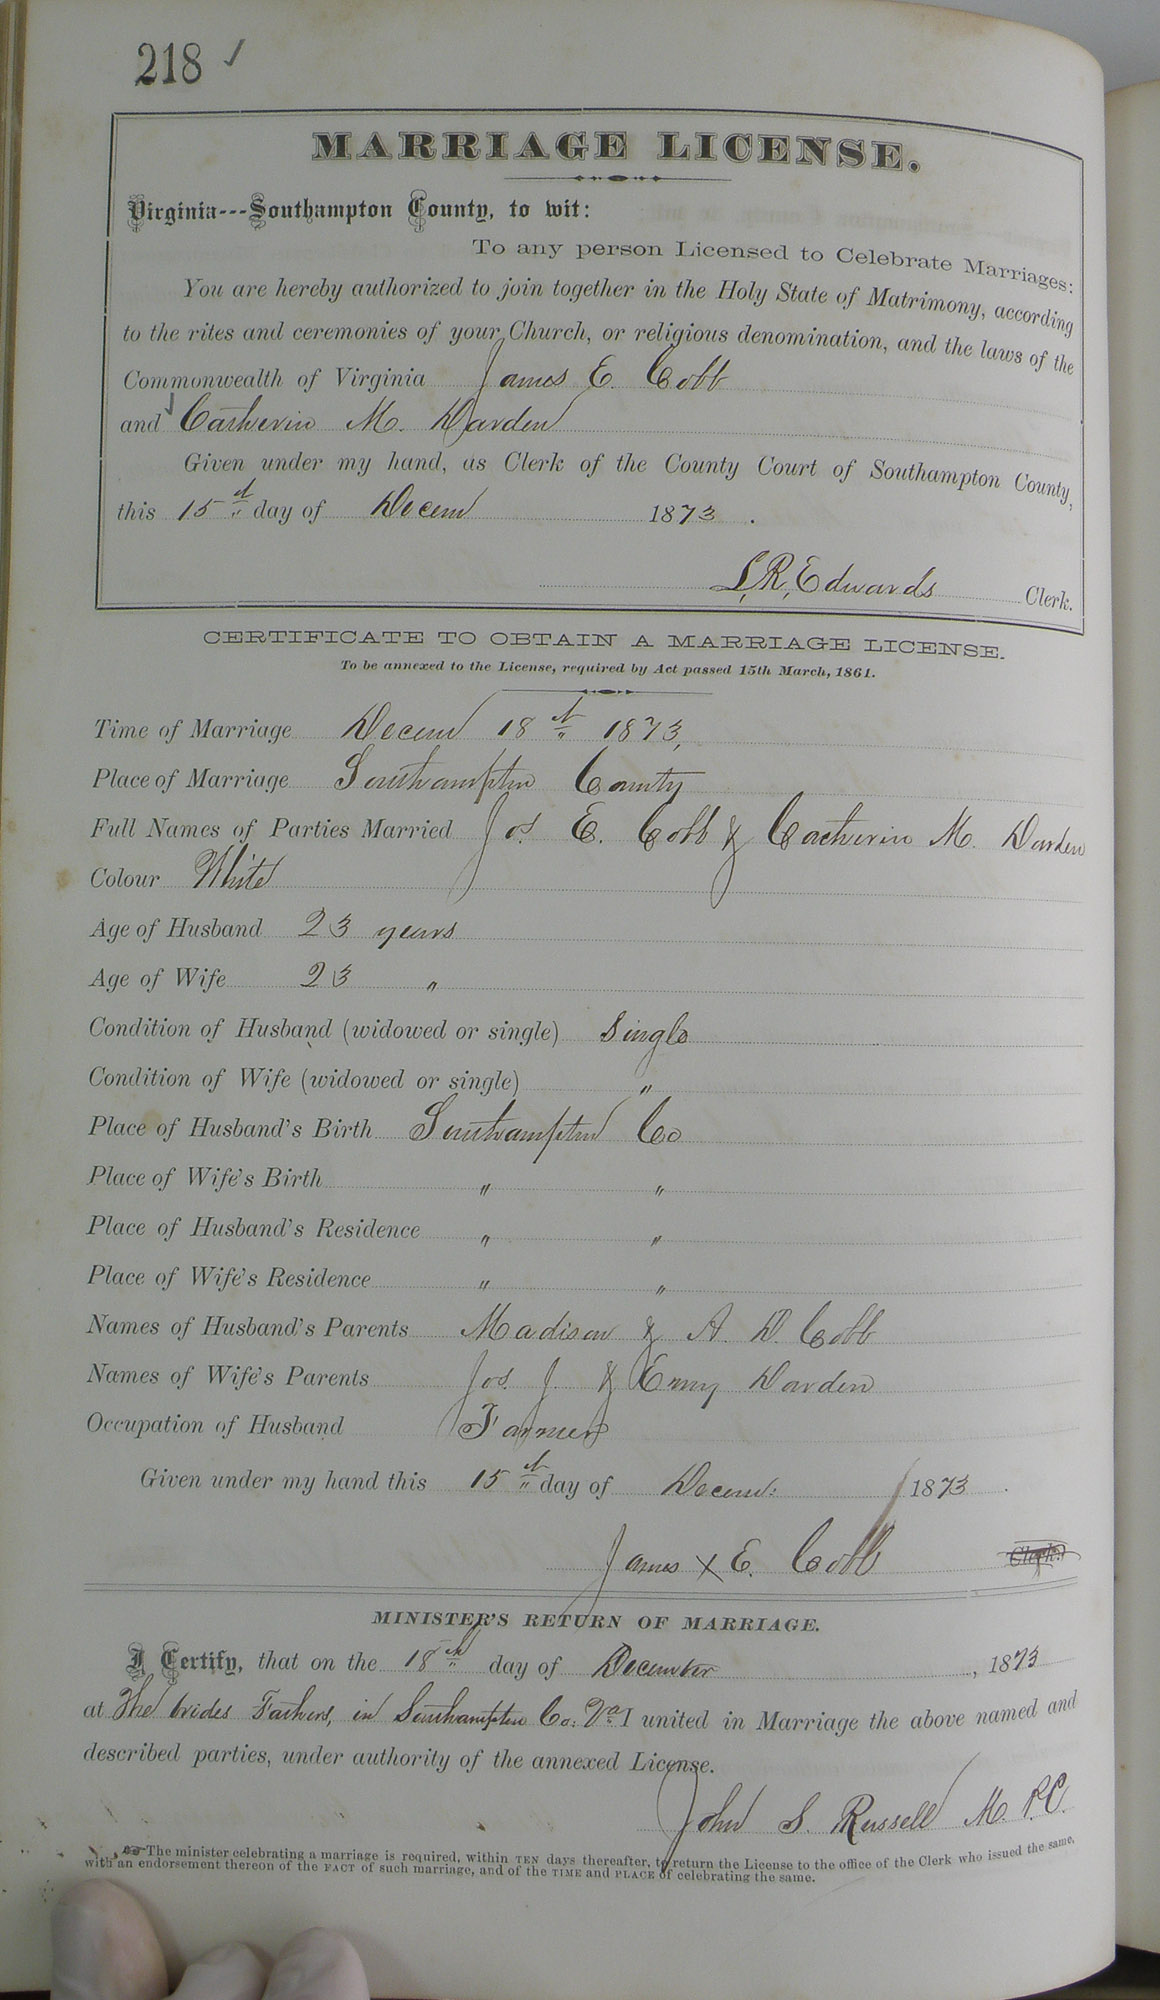 218 ✓
MARRIAGE LICENSE.
Virginia---Southampton County, to wit:
To any person Licensed to Celebrate Marriages:
You are hereby authorized to join together in the Holy State of Matrimony, according
to the rites and ceremonies of your Church, or religious denomination, and the laws of the
Commonwealth of Virginia James E. Cobb
and Catherin M. Darden
Given under my hand, as Clerk of the County Court of Southampton County,
this 15th day of Decem 1873.
L. R. Edwards Clerk.
CERTIFICATE TO OBTAIN A MARRIAGE LICENSE.
To be annexed to the License, required by Act passed 15th March, 1861.
Time of Marriage Decem 18th 1873,
Place of Marriage Southampton County
Full Names of Parties Married Jas. E. Cobb & Catherin M. Darden
Colour White
Age of Husband 23 years
Age of Wife 23 "
Condition of Husband (widowed or single) Single
Condition of Wife (widowed or single) "
Place of Husband's Birth Southampton Co
Place of Wife's Birth " "
Place of Husband's Residence " "
Place of Wife's Residence " "
Names of Husband's Parents Madison & A. D. Cobb
Names of Wife's Parents Jos. J. & Emy Darden
Occupation of Husband Farmer
Given under my hand this 15th day of Decem: 1873.
James X E. Cobb Clerk.
MINISTER'S RETURN OF MARRIAGE.
I Certify, that on the 18th day of December, 1873
at The brides Fathers, in Southampton Co. Va. I united in Marriage the above named and
described parties, under authority of the annexed License.
John S. Russell M. P. C.
The minister celebrating a marriage is required, within TEN days thereafter, to return the License to the office of the Clerk who issued the same,
with an endorsement thereon of the FACT of such marriage, and of the TIME and PLACE of celebrating the same.